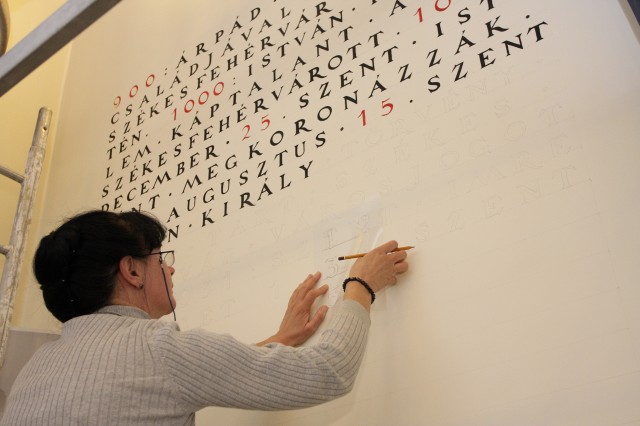 900: ÁRPÁD
CSALÁDJÁVAL
SZÉKESFEHÉRVÁR
TÉN · 1000: ISTVÁN ·
LEM · KÁPTALANT · A
SZÉKESFEHÉRVÁROTT · 10
DECEMBER · 25 · SZENT · IST
NT · MEGKORONÁZZÁK ·
AUGUSZTUS · 15 · SZENT
N · KIRÁLY